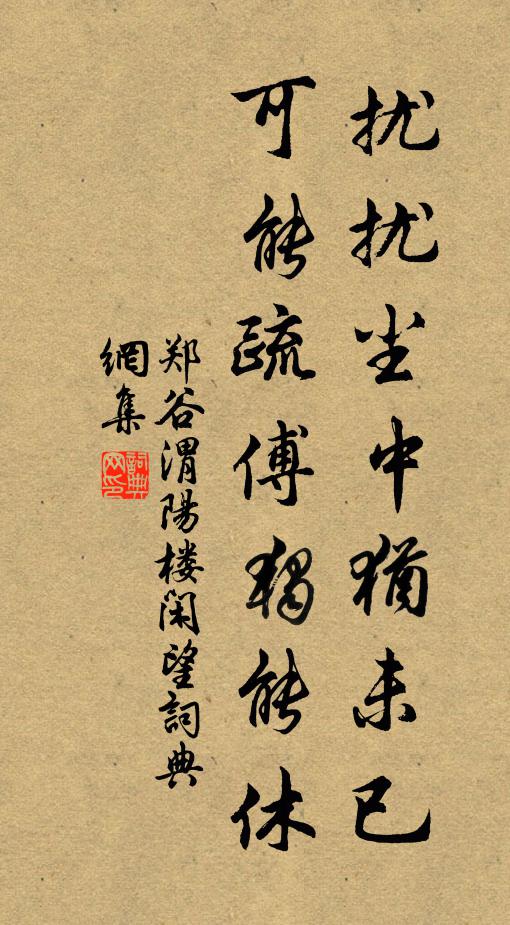 扰扰尘中犹未已
可能疏傅独能休
郑谷渭陽楼闲望詞典
網集
詞典网印